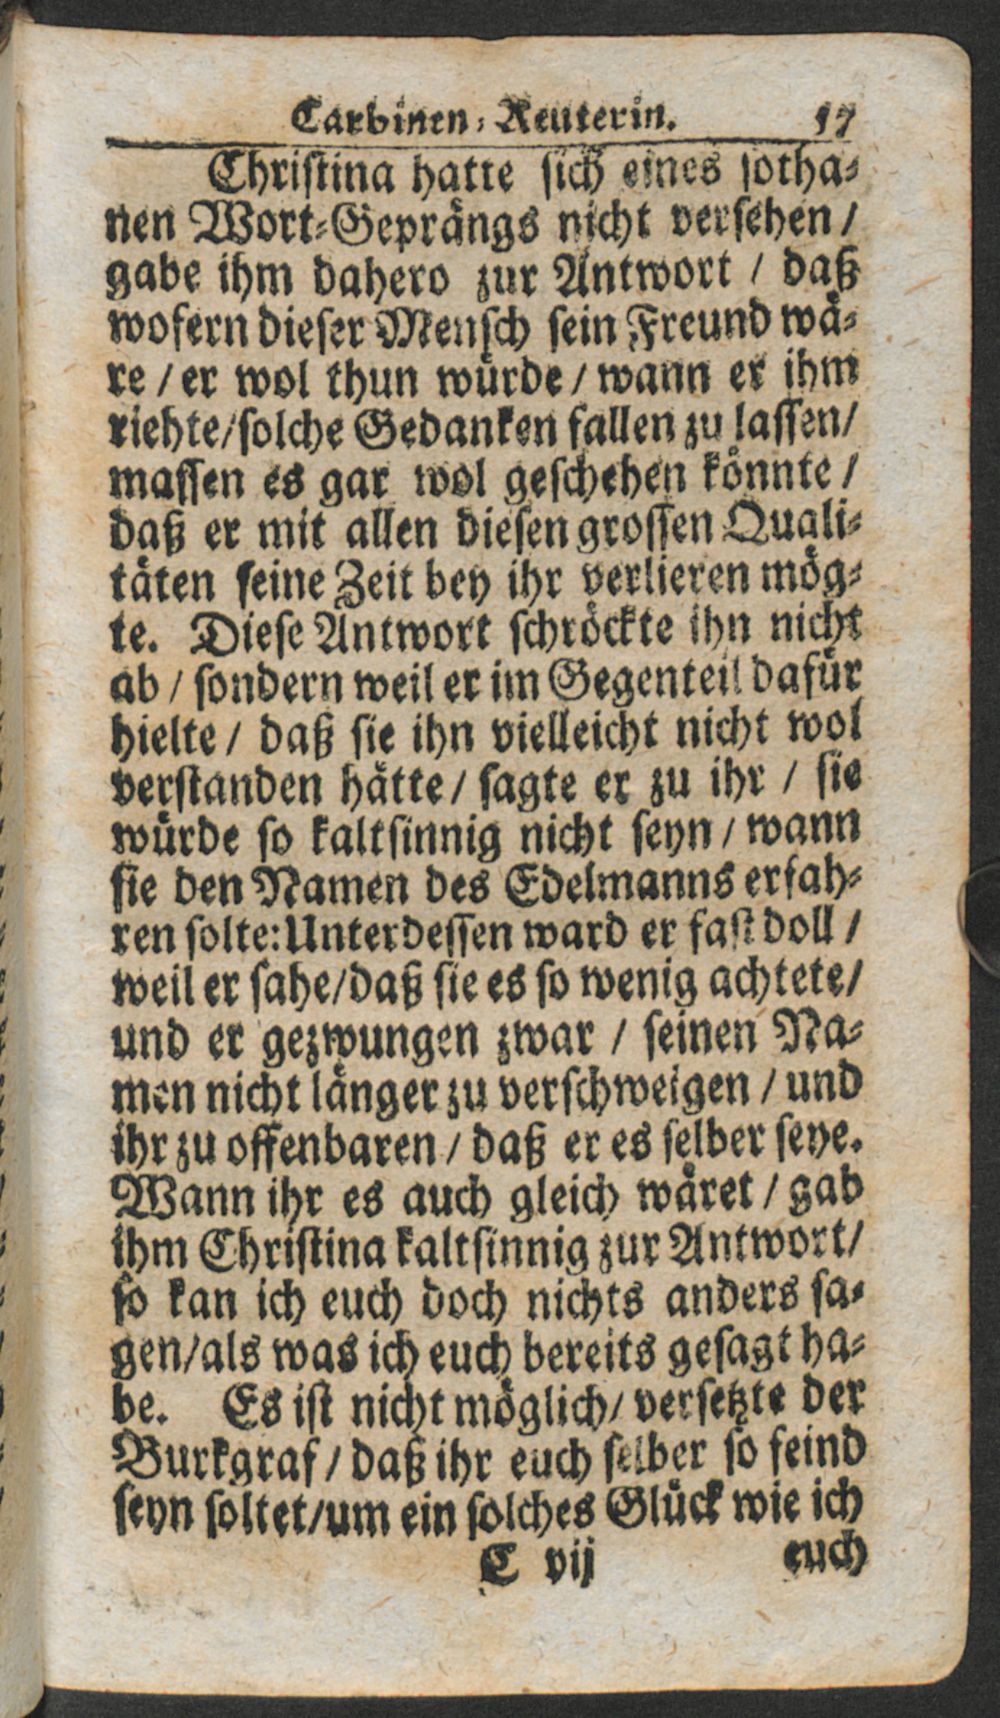 Carbinen-Reuterin. 17
Christina hatte sich eines sotha-
nen Wort-Geprängs nicht versehen /
gabe ihm dahero zur Antwort / daß
wofern dieser Mensch sein Freund wä-
re / er wol thun würde / wann er ihm
riehte/solche Gedanken fallen zu lassen/
massen es gar wol geschehen könnte /
daß er mit allen diesen grossen Quali-
täten seine Zeit bey ihr verlieren mög-
te. Diese Antwort schröckte ihn nicht
ab / sondern weil er im Gegenteil dafür
hielte / daß sie ihn vielleicht nicht wol
verstanden hätte / sagte er zu ihr / sie
würde so kaltsinnig nicht seyn / wann
sie den Namen des Edelmanns erfah-
ren solte: Unterdessen ward er fast doll /
weil er sahe/daß sie es so wenig achtete/
und er gezwungen zwar / seinen Na-
men nicht länger zu verschweigen / und
ihr zu offenbaren / daß er es selber seye.
Wann ihr es auch gleich wäret / gab
ihm Christina kaltsinnig zur Antwort/
so kan ich euch doch nichts anders sa-
gen/als was ich euch bereits gesagt ha-
be. Es ist nicht möglich/ versetzte der
Burkgraf / daß ihr euch selber so feind
seyn soltet/um ein solches Glück wie ich
C vij euch